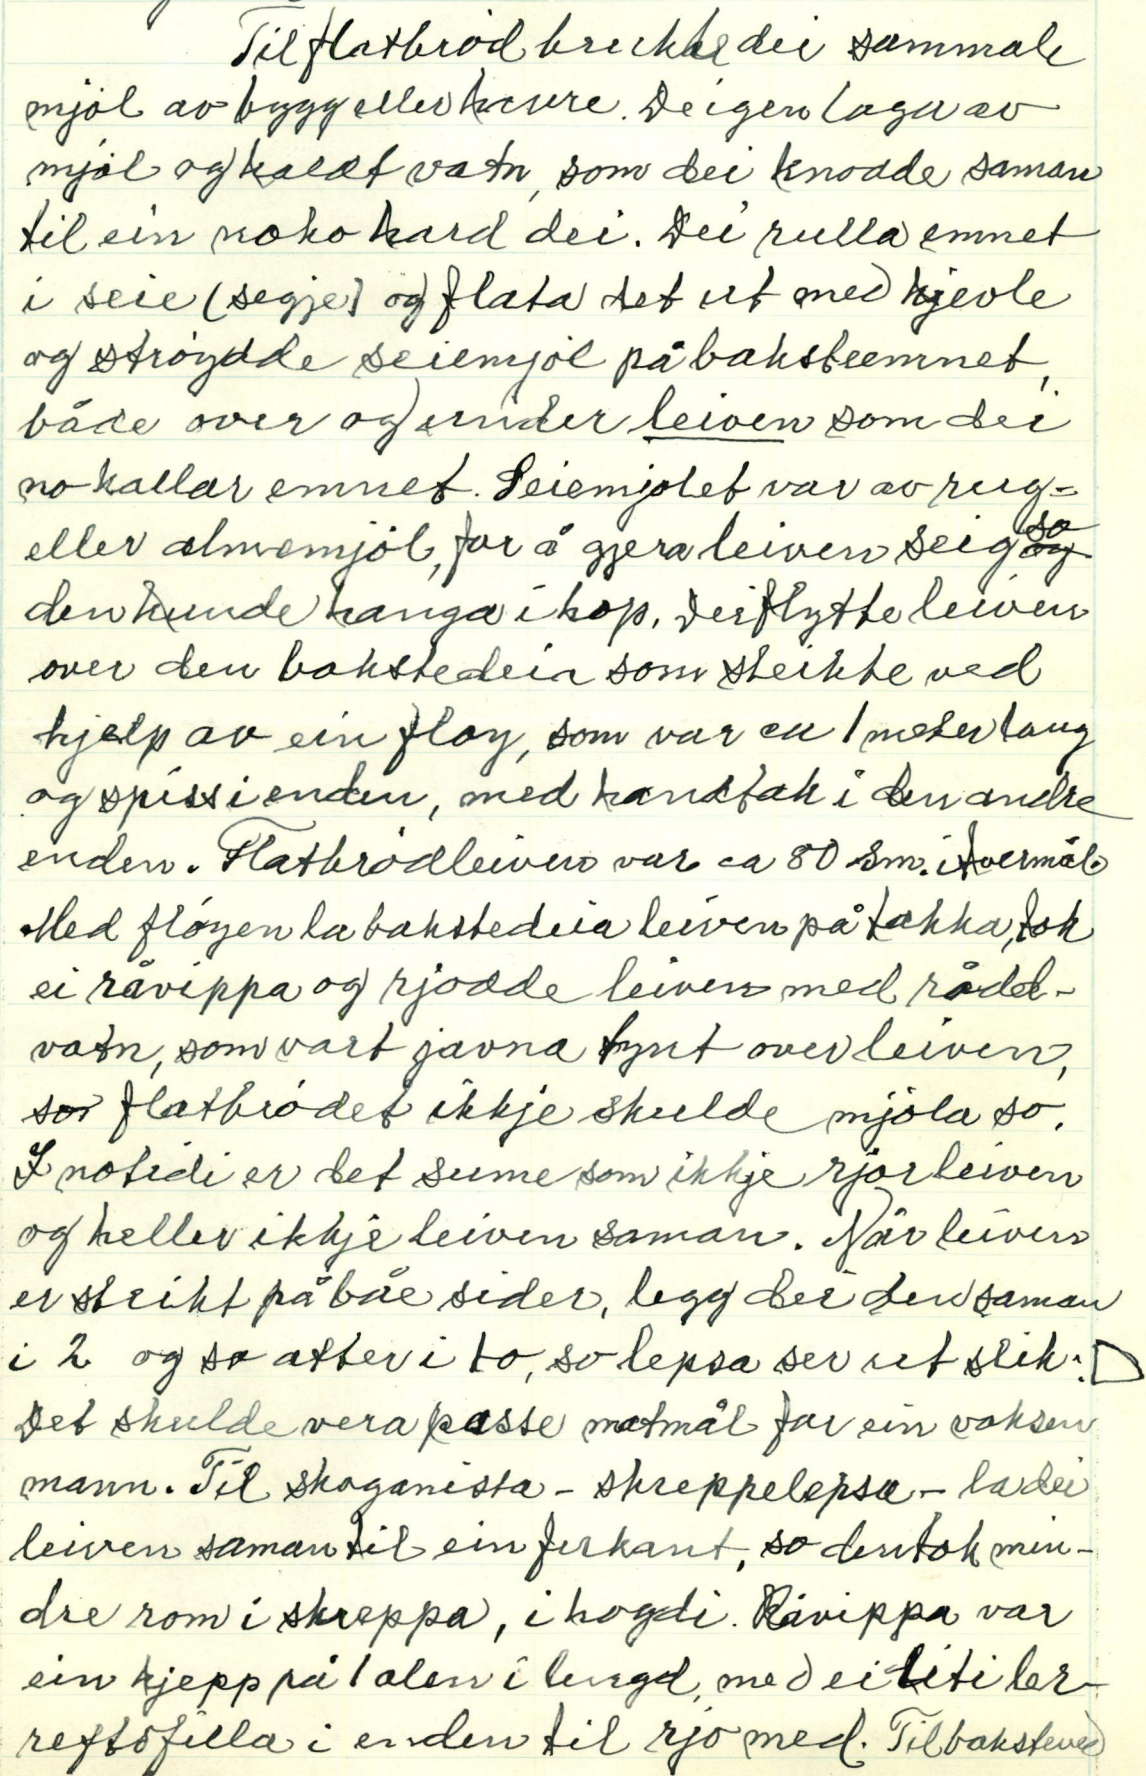 Til flatbrød brukke dei sammale
mjøl av bygg eller havre. Deigen laga av
mjøl og kaldt vatn, som dei knodde saman
til ein noko hard dei. Dei rulla emnet
i seie (segje) og flata det ut med kjevle
og strøydde seiemjøl på baksteemnet,
både over og under leiven som dei
no kallar emnet. Seiemjølet var av rug-
eller almemjøl, for å gjera leiven seig so
den kunde hanga i hop. Dei flytte leiven
over den bakstedeia som steikte ved
hjelp av ein fløy, som var ca 1 meter lang
og spiss i enden, med handtak i den andre
enden. Flatbrødleiven var ca 80 sm. i tvermål.
Med fløyen la bakstedeia leiven på takka, tok
ei råvippa og rjodde leiven med rådel-
vatn, som vart javna tynt over leiven,
so flatbrødet ikkje skulde mjøla so.
I notidi er det sume som ikkje rjor leiven
og heller ikkje leiven saman. Når leiven
er steikt på båe sider, legg dei den saman
i 2 og so atter i to, so lepsa ser ut slik:
Det skulde vera passe matmål for ein voksen
mann. Til skoganista - skreppelepsa - la dei
leiven saman til ein firkant, so den tok min-
dre rom i skreppa, i høgdi. Råvippa var
ein kjepp på 1 alen i lengd, med ei liti ler-
reftsfilla i enden til rjo med. Til baksteved